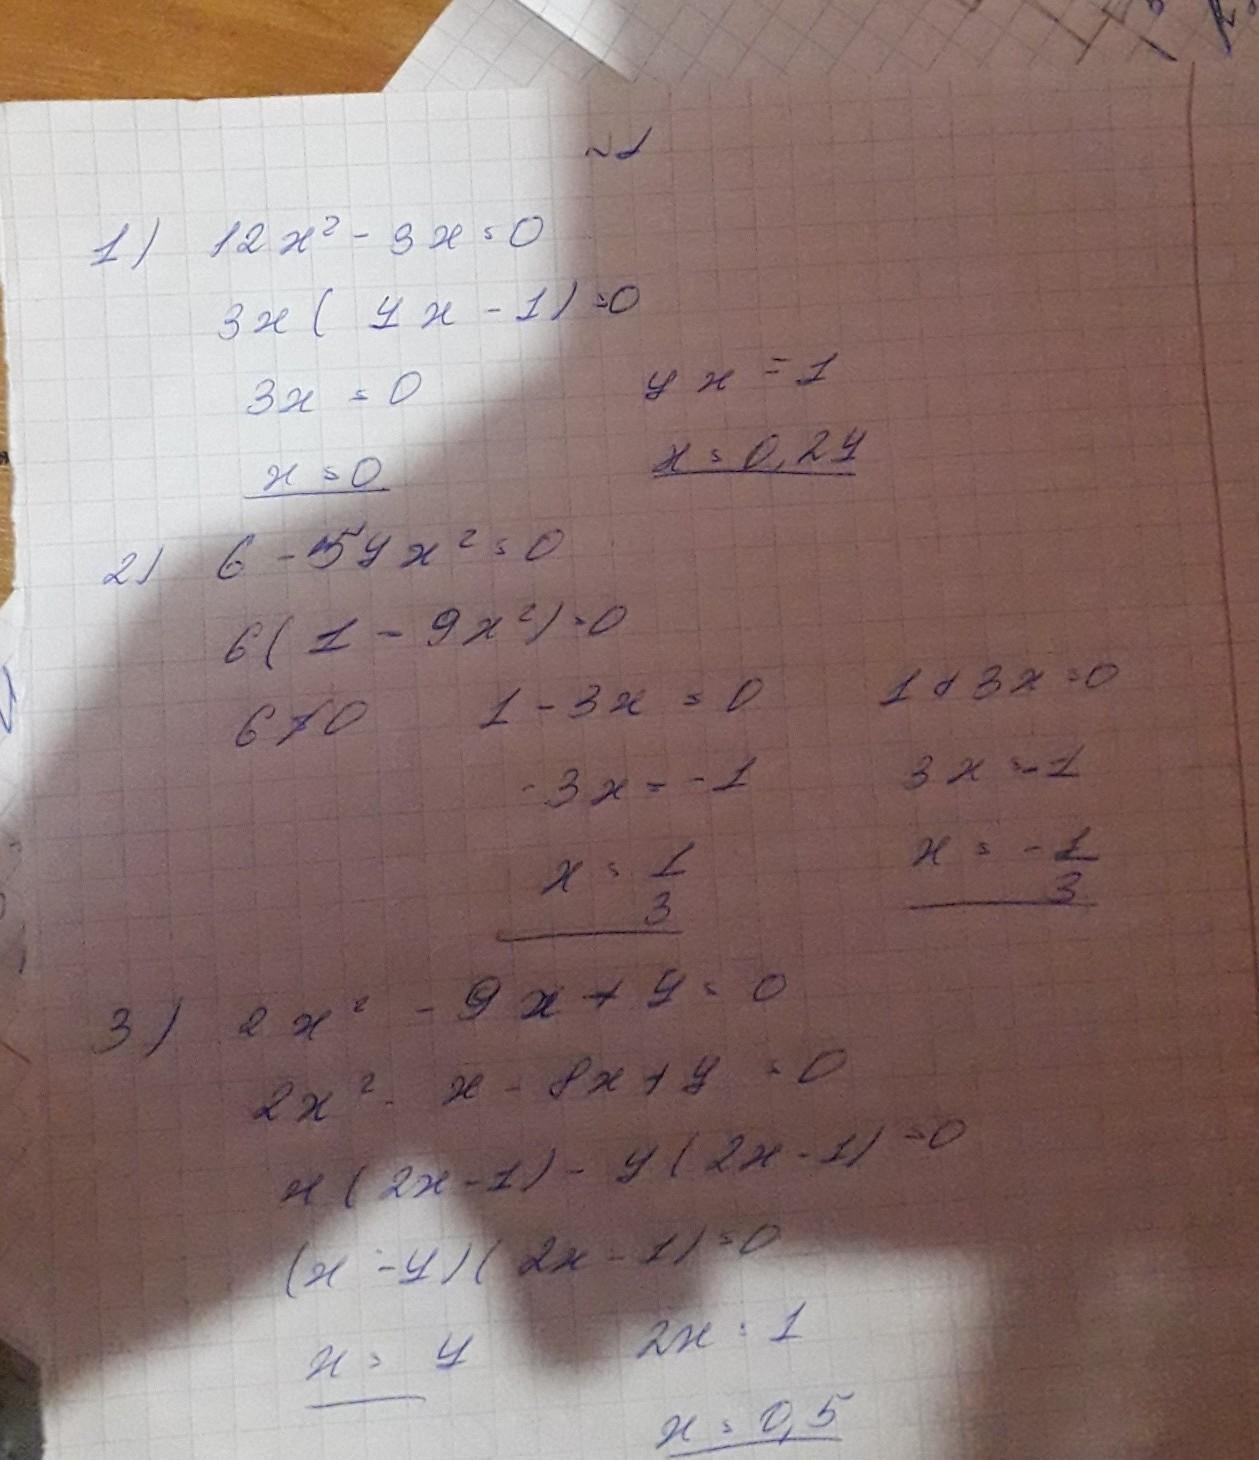 №1
1) 12x² - 3x = 0
3x(4x - 1) = 0
3x = 0 4x = 1
x = 0 x = 0,24
2) 6 - 54x² = 0
6(1 - 9x²) = 0
6≠0 1 - 3x = 0 1 + 3x = 0
-3x = -1 3x = -1
x = 1/3 x = -1/3
3) 2x² - 9x + 4 = 0
2x² - x - 8x + 4 = 0
x(2x - 1) - 4(2x - 1) = 0
(x - 4)(2x - 1) = 0
x = 4 2x = 1
x = 0,5